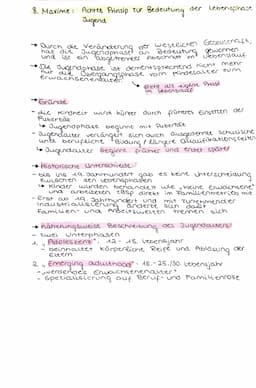 8. Maxime: Achtes Prinzip zur Bedeutung der Lebensphase
Jugend
→ Durch die Veränderung der westlichen Gesellschaft,
hat die Jugendphase an Bedeutung gewonnen
und ist ein Abschnitt im Lebenslauf
→ Die Jugendphase ist dementsprechend nicht mehr
nur die Übergangsphase vom Kindesalter zum
Erwachsenenalter.
→ Gründe
- die Kindheit wird kürzer durch früheres Eintreten der
Pubertät
↳ Jugendphase beginnt mit Pubertät
- Jugendalter verlängert sich durch ausgedehnte schulische
und berufliche Bildung / längere Qualifikationszeiten
↳ Jugendalter beginnt früher und endet später
→ Historische Unterschiede:
- bis ins 19. Jahrhundert gab es keine Unterscheidung
zwischen den Lebensphasen
↳ Kinder wurden behandelt wie „kleine Erwachsene"
und arbeiteten direkt im Familienbetrieb mit
- Erst ab 19. Jahrhundert und mit zunehmender
Industrialisierung änderte sich das
Familien- und Arbeitswelten trennen sich
→ Beschreibung des Jugendalters:
- zwei Unterphasen
1. „Adoleszenz": 12. - 18. Lebensjahr
- beinhaltet körperliche Reife und Ablösung der
Eltern
2. „Emerging adulthood": 18. - 25./30 Lebensjahr
- „werdendes Erwachsenenalter"
- Spezialisierung auf Berufs- und Familienrolle